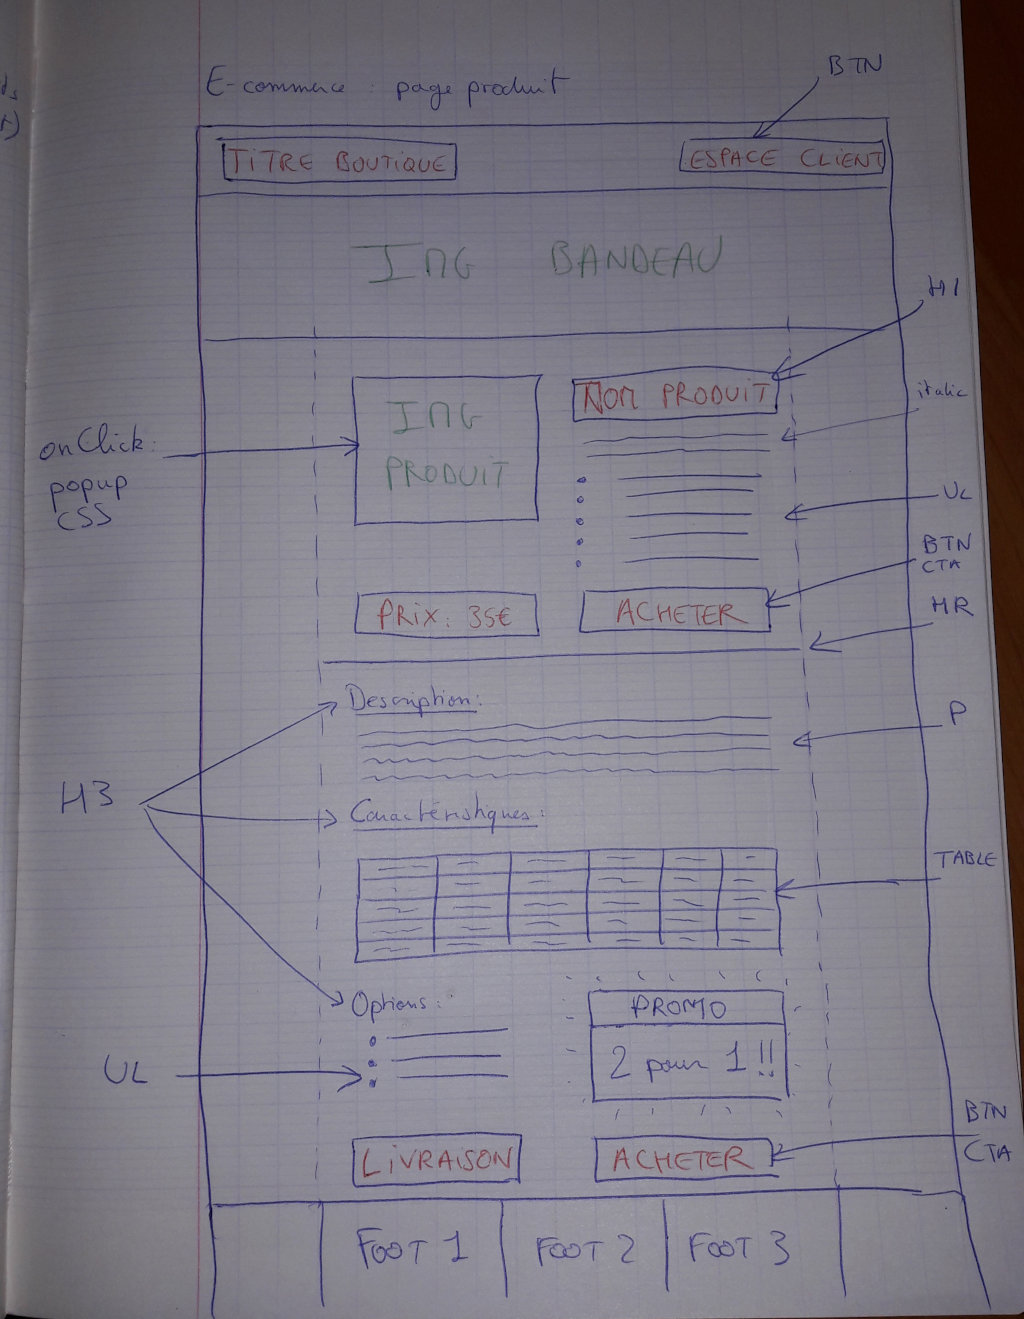 E-commerce : page produit
BTN
TITRE BOUTIQUE
ESPACE CLIENT
IMG BANDEAU
H1
NOM PRODUIT
italic
IMG
PRODUIT
onClick:
popup
CSS
UL
BTN
CTA
HR
PRIX: 35€
ACHETER
Description:
P
H3
Caractéristiques:
TABLE
Options:
PROMO
2 pour 1 !!
UL
BTN
CTA
LIVRAISON
ACHETER
FOOT 1
FOOT 2
FOOT 3